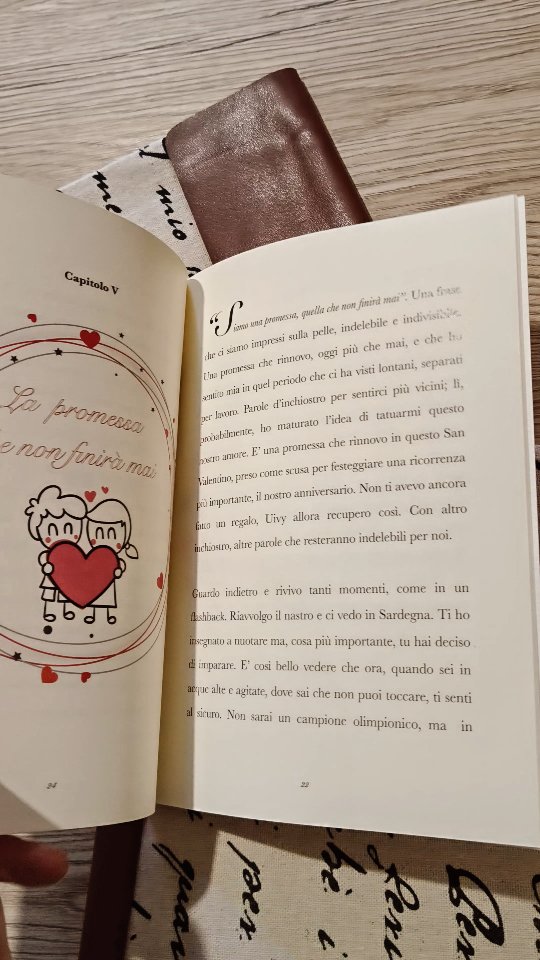 Capitolo V
La promessa
e non finirà mai
24
"Siamo una promessa, quella che non finirà mai". Una frase
che ci siamo impressi sulla pelle, indelebile e indivisibile.
Una promessa che rinnovo, oggi più che mai, e che ho
sentito mia in quel periodo che ci ha visti lontani, separati
per lavoro. Parole d'inchiostro per sentirci più vicini; lì,
probabilmente, ho maturato l'idea di tatuarmi questo
nostro amore. E' una promessa che rinnovo in questo San
Valentino, preso come scusa per festeggiare una ricorrenza
più importante, il nostro anniversario. Non ti avevo ancora
fatto un regalo, Uivy allora recupero così. Con altro
inchiostro, altre parole che resteranno indelebili per noi.
Guardo indietro e rivivo tanti momenti, come in un
flashback. Riavvolgo il nastro e ci vedo in Sardegna. Ti ho
insegnato a nuotare ma, cosa più importante, tu hai deciso
di imparare. E' così bello vedere che ora, quando sei in
acque alte e agitate, dove sai che non puoi toccare, ti senti
al sicuro. Non sarai un campione olimpionico, ma in
22
mio
me
per
quan